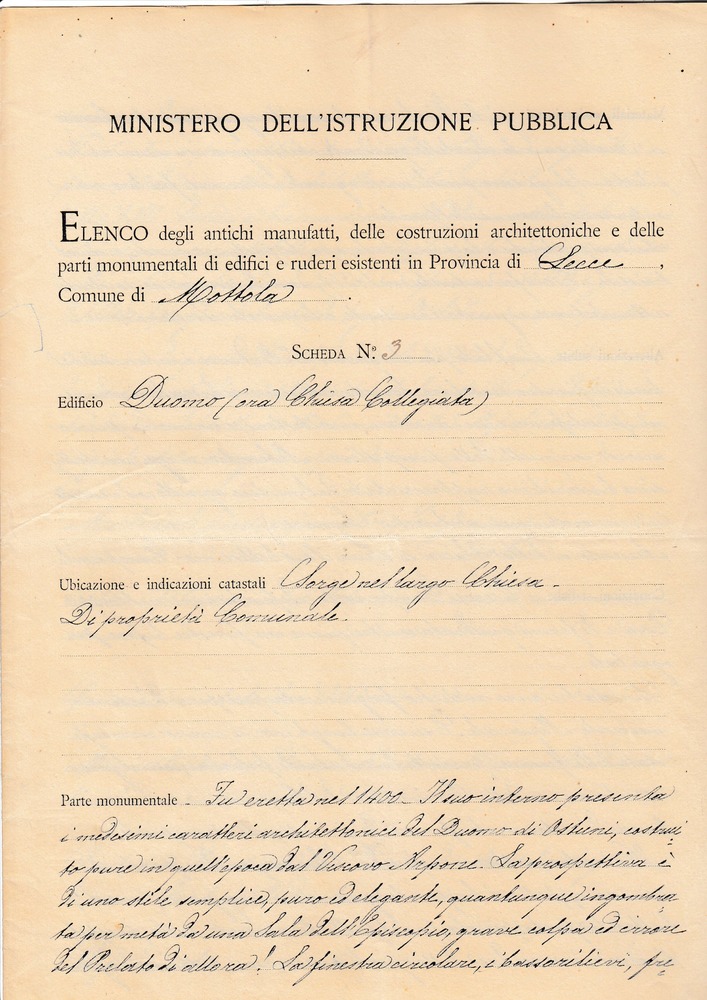 MINISTERO DELL'ISTRUZIONE PUBBLICA
ELENCO degli antichi manufatti, delle costruzioni architettoniche e delle
parti monumentali di edifici e ruderi esistenti in Provincia di Lecce,
Comune di Mottola.
SCHEDA N.º 3
Edificio Duomo (ora Chiesa Collegiata)
Ubicazione e indicazioni catastali Sorge nel largo Chiesa.
Di proprietà Comunale.
Parte monumentale - Fu eretta nel 1400 - Il suo interno presenta
i medesimi caratteri architettonici del Duomo di Ostuni, costrui=
to pure in quell'epoca dal Vescovo Arpone. La prospettiva è
di uno stile semplice, puro ed elegante, quantunque ingombra=
ta per metà da una Sala dell'Episcopio, grave colpa ed errore
del Prelato di allora! La finestra circolare, i bassorilievi, fre=